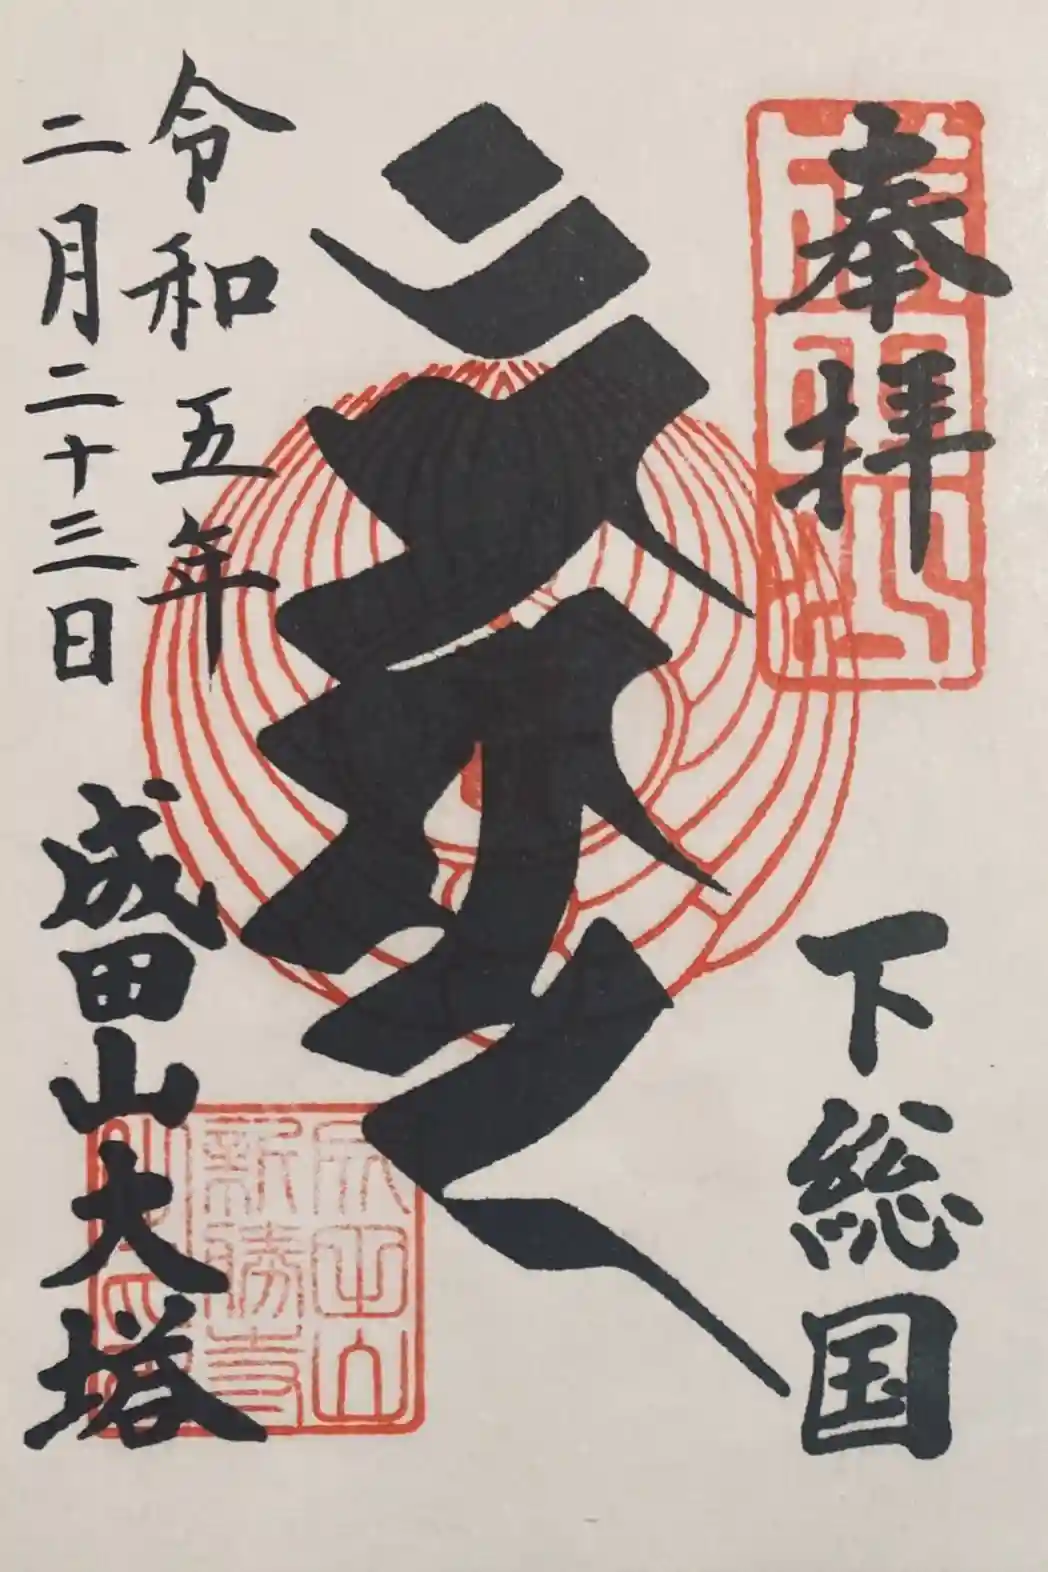 奉拝
下総国
令和五年
二月二十三日
成田山大塔
成田山
新勝寺